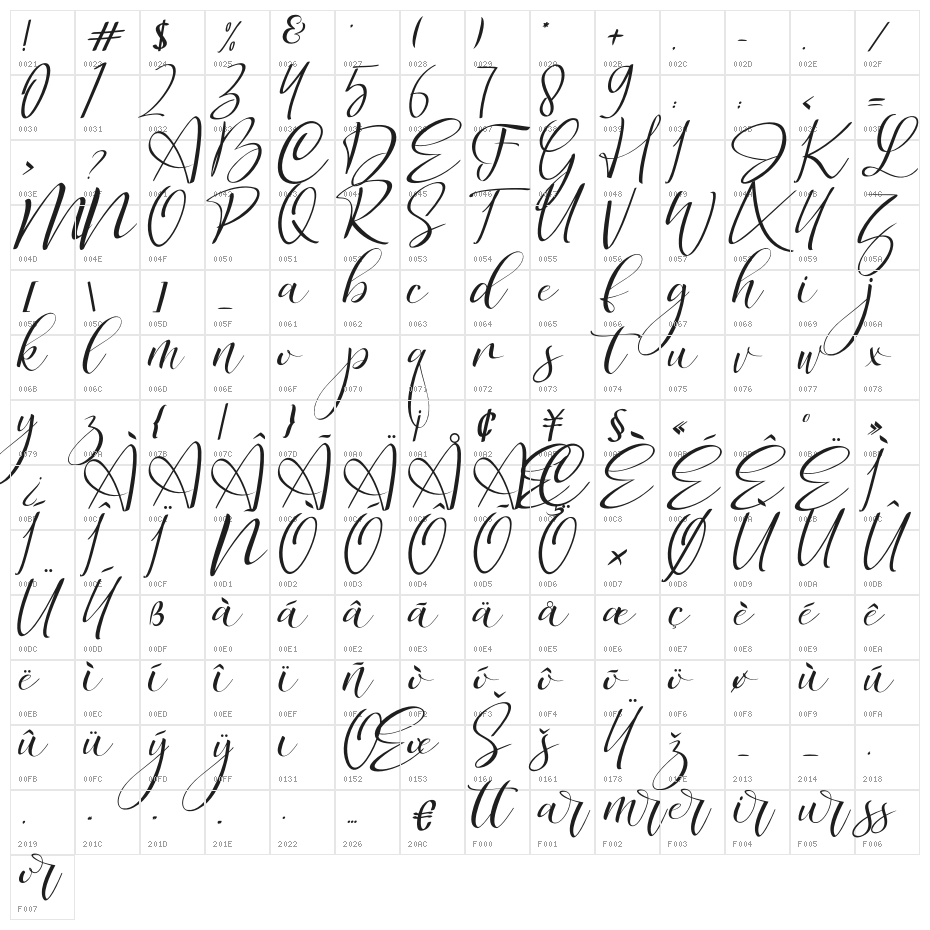 ! # $ % & ' ( ) * + , - . /
0021 0023 0024 0025 0026 0027 0028 0029 002A 002B 002C 002D 002E 002F
0 1 2 3 4 5 6 7 8 9 : ; < =
0030 0031 0032 0033 0034 0035 0036 0037 0038 0039 003A 003B 003C 003D
> ? A B C D E F G H I J K L
003E 003F 0041 0042 0043 0044 0045 0046 0047 0048 0049 004A 004B 004C
M N O P Q R S T U V W X Y Z
004D 004E 004F 0050 0051 0052 0053 0054 0055 0056 0057 0058 0059 005A
[ \ ] _ a b c d e f g h i j
005B 005C 005D 005F 0061 0062 0063 0064 0065 0066 0067 0068 0069 006A
k l m n o p q r s t u v w x
006B 006C 006D 006E 006F 0070 0071 0072 0073 0074 0075 0076 0077 0078
y z { | } ¡ ¢ ¥ § « º »
0079 007A 007B 007C 007D 00A0 00A1 00A2 00A5 00A7 00AB 00AD 00BA 00BB
¿ À Á Â Ã Ä Å Æ Ç È É Ê Ë Ì
00BF 00C0 00C1 00C2 00C3 00C4 00C5 00C6 00C7 00C8 00C9 00CA 00CB 00CC
Í Î Ï Ñ Ò Ó Ô Õ Ö × Ø Ù Ú Û
00CD 00CE 00CF 00D1 00D2 00D3 00D4 00D5 00D6 00D7 00D8 00D9 00DA 00DB
Ü Ý ß à á â ã ä å æ ç è é ê
00DC 00DD 00DF 00E0 00E1 00E2 00E3 00E4 00E5 00E6 00E7 00E8 00E9 00EA
ë ì í î ï ñ ò ó ô õ ö ø ù ú
00EB 00EC 00ED 00EE 00EF 00F1 00F2 00F3 00F4 00F5 00F6 00F8 00F9 00FA
û ü ý ÿ ı Œ œ Š š Ÿ ž – — ‘
00FB 00FC 00FD 00FF 0131 0152 0153 0160 0161 0178 017E 2013 2014 2018
’ “ ” „ • … € tt ar mr er ir ur ss
2019 201C 201D 201E 2022 2026 20AC F000 F001 F002 F003 F004 F005 F006
or
F007